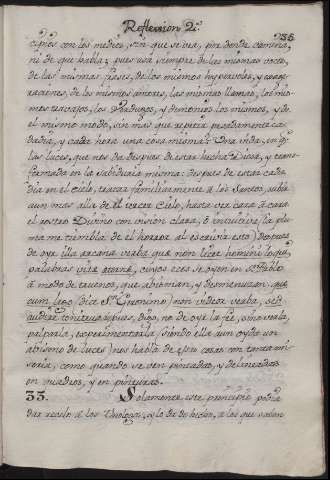 Reflexion 2ª
235
cipios con los medios, sin que se vea, por donde camina,
ni de que habla; pues usa siempre de las mismas voces,
de las mismas frases, de los mismos hyperboles, y exage-
raciones, de los mismos amores, las mismas llamas, los mis-
mos trabajos, los Verdugos, y demonios los mismos, y de
el mismo modo, sin mas que repetir pesadamente ca-
da dia, y cada hora una cosa misma? Una vida, en q.
las luces, que nos da despues de estar hecha Diosa, y trans-
formada en la sabiduria misma: despues de estar cada
dia en el cielo, tratar familiarmente a los Santos, subir
aun mas alla de el tercer Cielo, hasta ver cara à cara
el rostro Divino con vision clara, ò intuitiva (la plu-
ma me tiembla de el horror al escrivir esto) despues
de oyr illa arcana verba que non licet homini loqui,
palabras vita æterna, cuyos ecos se oyen en Sn. Pablo
à modo de truenos, que abisman, y desmenuzan, que
cum lego (dice Sn. Geronimo) non videor verba, sed
audire tonitrua; despues, digo, no de oyr la fee, sino verla,
palparla, experimentarla, siendo ella aun oyda un
abismo de luces; nos habla de esto cosas con tanta mi-
seria, como quando se ven pintadas, y delineadas
en quadros, y en pinturas.
33. Solamente este principio podia
dar recelo à los Theologos, y lo dio de hecho, à los que saben